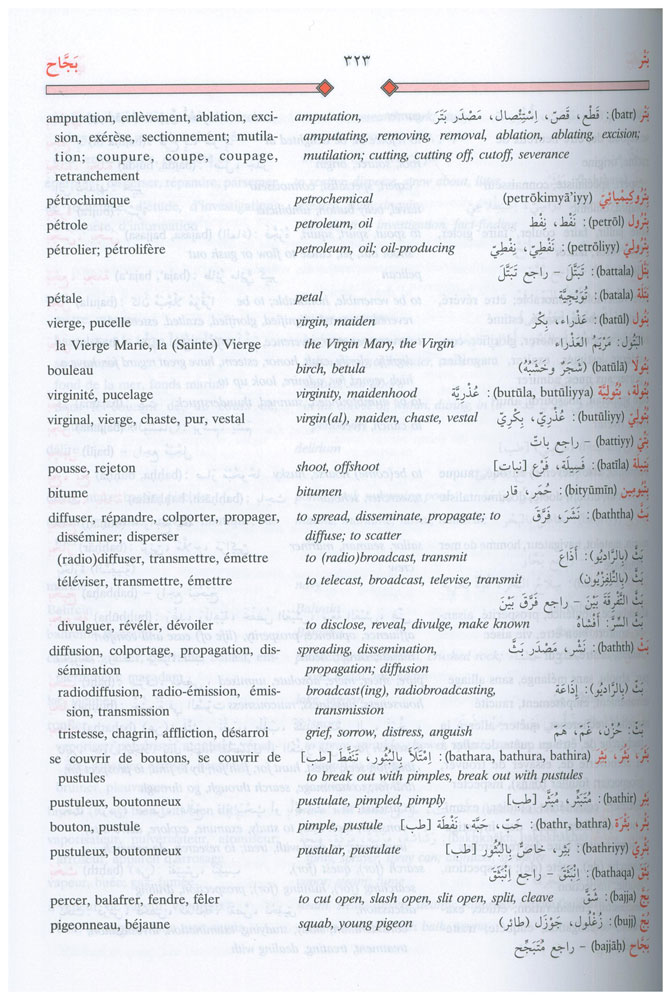 بَتْر ٣٢٣ بَجَّاح
amputation, enlèvement, ablation, exci- amputation, بَتْر (batr): قَطْع، قَصّ، اِسْتِئْصال، مَصْدَر بَتَرَ
sion, exérèse, sectionnement; mutila- amputating, removing, removal, ablation, ablating, excision;
tion; coupure, coupe, coupage, mutilation; cutting, cutting off, cutoff, severance
retranchement
pétrochimique petrochemical بِتْرُوكِيمْيائِيّ (petrōkimyā'iyy)
pétrole petroleum, oil بِتْرُول (petrōl): نَفْط، نِفْط
pétrolier; pétrolifère petroleum, oil; oil-producing بِتْرُولِيّ (petrōliyy): نَفْطِيّ، نِفْطِيّ
بَتَّلَ (battala): تَبَتَّلَ – راجع تَبَتَّلَ
pétale petal بَتَلَة (batala): تُوَيْجِيَّة
vierge, pucelle virgin, maiden بَتُول (batūl): عَذْراء، بِكْر
la Vierge Marie, la (Sainte) Vierge the Virgin Mary, the Virgin البَتُول: مَرْيَمُ العَذْراء
bouleau birch, betula بَتُولا (batūlā) (شَجَرٌ وخَشَبُهُ)
virginité, pucelage virginity, maidenhood بُتُولَة، بُتُولِيَّة (butūla, butūliyya): عُذْرِيَّة
virginal, vierge, chaste, pur, vestal virgin(al), maiden, chaste, vestal بُتُولِيّ (butūliyy): عُذْرِيّ، بِكْرِيّ
بَتِّيّ (battiyy) – راجع باتّ
pousse, rejeton shoot, offshoot بَتِيلَة (batīla): فَسِيلَة، فَرْع [نبات]
bitume bitumen بِتْيُومِين (bityūmīn): حُمَر، قار
diffuser, répandre, colporter, propager, to spread, disseminate, propagate; to بَثَّ (baththa): نَشَرَ، فَرَّقَ
disséminer; disperser diffuse; to scatter
(radio)diffuser, transmettre, émettre to (radio)broadcast, transmit بَثَّ (بِالرَّادْيُو): أَذَاعَ
téléviser, transmettre, émettre to telecast, broadcast, televise, transmit بَثَّ (بِالتِّلِفِزْيُون)
بَثَّ التَّفْرِقَةَ بَيْنَ – راجع فَرَّقَ بَيْنَ
divulguer, révéler, dévoiler to disclose, reveal, divulge, make known بَثَّ السِّرَّ: أَفْشاهُ
diffusion, colportage, propagation, dis- spreading, dissemination, بَثّ (bathth): نَشْر، مَصْدَر بَثَّ
sémination propagation; diffusion
radiodiffusion, radio-émission, émis- broadcast(ing), radiobroadcasting, بَثّ (بِالرَّادْيُو): إذاعَة
sion, transmission transmission
tristesse, chagrin, affliction, désarroi grief, sorrow, distress, anguish بَثّ: حُزْن، غَمّ، هَمّ
se couvrir de boutons, se couvrir de بَثَرَ، بَثُرَ، بَثِرَ (bathara, bathura, bathira): اِمْتَلأَ بِالبُثُور، تَنَفَّطَ [طب]
pustules to break out with pimples, break out with pustules
pustuleux, boutonneux pustulate, pimpled, pimply بَثِر (bathir): مُتَبَثِّر، مُبَثَّر [طب]
bouton, pustule pimple, pustule بَثْر، بَثْرَة (bathr, bathra): حَبّ، حَبَّة، نَفْطَة [طب]
pustuleux, boutonneux pustular, pustulate بَثْرِيّ (bathriyy): بَثِر، خاصّ بِالبُثُور [طب]
بَثَقَ (bathaqa): اِنْبَثَقَ – راجع اِنْبَثَقَ
percer, balafrer, fendre, fêler to cut open, slash open, slit open, split, cleave بَجَّ (bajja): شَقَّ
pigeonneau, béjaune squab, young pigeon بُجّ (bujj): زُغْلُول، جَوْزَل (طائر)
بَجَّاح (bajjāḥ) – راجع مُتَبَجِّح